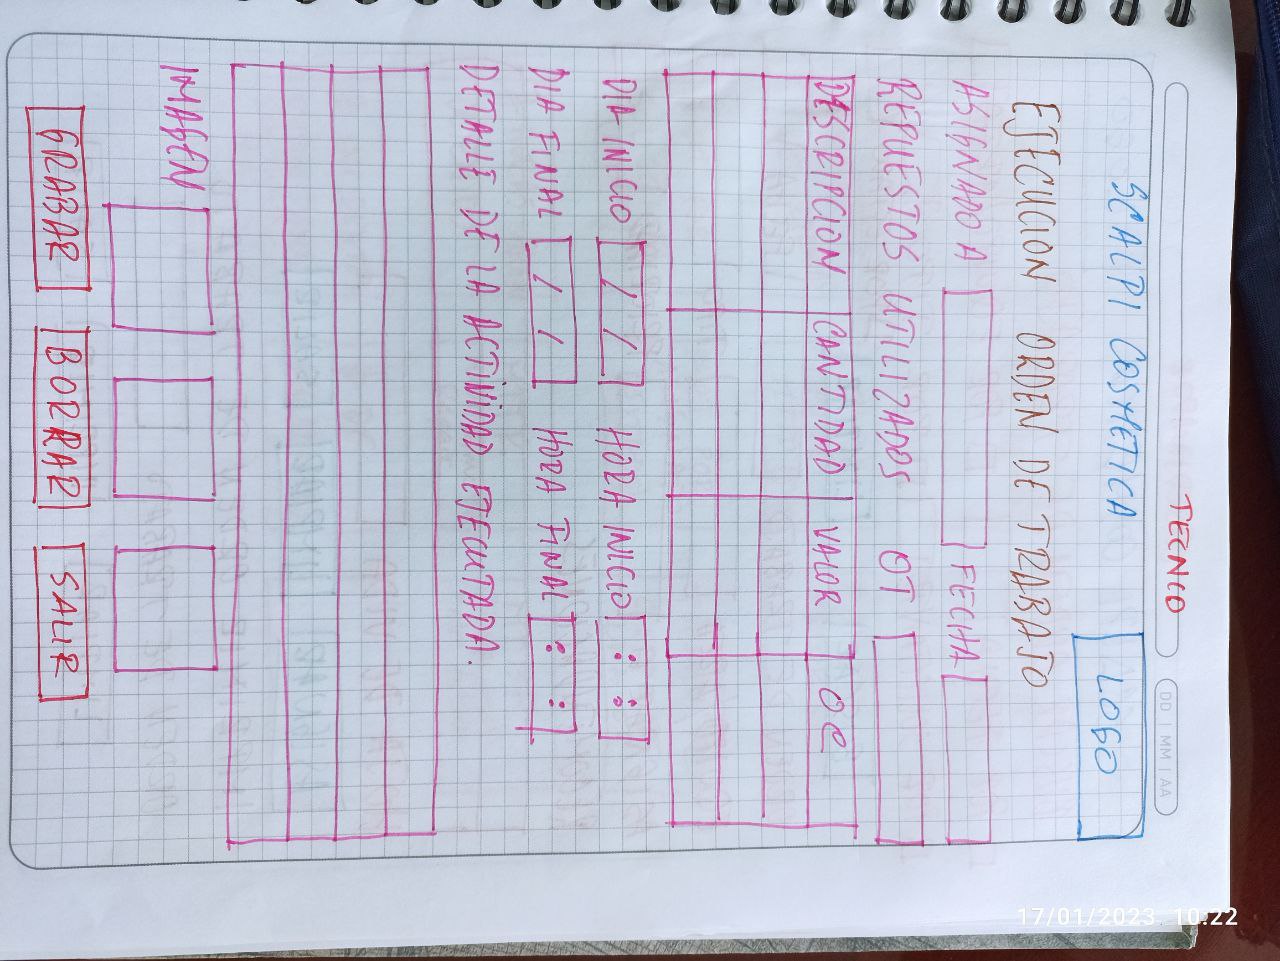 TECNCO
DD | MM | AA
SCALPI COSMETICA
LOGO
EJECUCION ORDEN DE TRABAJO
ASIGNADO A FECHA
REPUESTOS UTILIZADOS OT
DESCRIPCION CANTIDAD VALOR OC
DIA INICIO / / HORA INICIO : :
DIA FINAL / / HORA FINAL : :
DETALLE DE LA ACTIVIDAD EJECUTADA.
IMAGEN
GRABAR BORRAR SALIR
17/01/2023 10:22